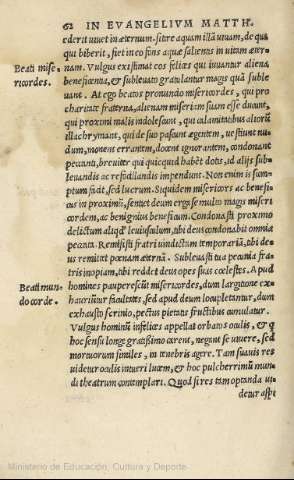 62 IN EVANGELIVM MATTH.
ederit vivet in æternum. sitire aquam illā vivam, de qua
qui biberit, fiet in eo fōns aquæ salientis in vitam æter-
Beati mise
ricordes.
nam. Vulgus existimat eos felices qui iuvantur aliena
beneficentia, & sublevati gratulantur magis quã suble
vant. At ego beatos pronuntio misericordes, qui pro
charitate fraterna, alienam miseriam suam esse ducunt,
qui proximi malis indolescunt, qui calamitatibus alterũ
illachrymant, qui de suo pascunt ægentem, vestiunt nu-
dum, monent errantem, docent ignorantem, condonant
peccanti, breviter qui quicquid habēt dotis, id alijs suble-
vandis ac refocillandis impendunt. Non enim is sum-
ptum facit, sed lucrum. Siquidem misericors ac benefi-
cus in proximũ, sentiet deum erga se multo magis miseri
cordem, ac benignius beneficum. Condonasti proximo
delictum aliqd' leviusculum, tibi deus condonabit omnia
peccata. Remisisti fratri vindictam temporariã, tibi de-
us remittet pœnam æternã. Sublevasti tua pecunia fra-
tris inopiam, tibi reddet deus opes suas cœlestes. Apud
Beati mun
do corde.
homines pauperescūt misericordes, dum largitione ex-
hauriūtur facultates, sed apud deum locupletantur, dum
exhausto scrinio, pectus pietatis fructibus cumulatur.
Vulgus hominũ infelices appellat orbatos oculis, & q
hoc sensu longe gratissimo carent, negant se vivere, sed
mortuorum similes, in tenebris agere. Tam suavis res
videtur oculis intueri lucem, & hoc pulcherrimũ mun-
di theatrum contemplari. Quod si res tam optanda vi-
detur aspi
Ministerio de Educación, Cultura y Deporte